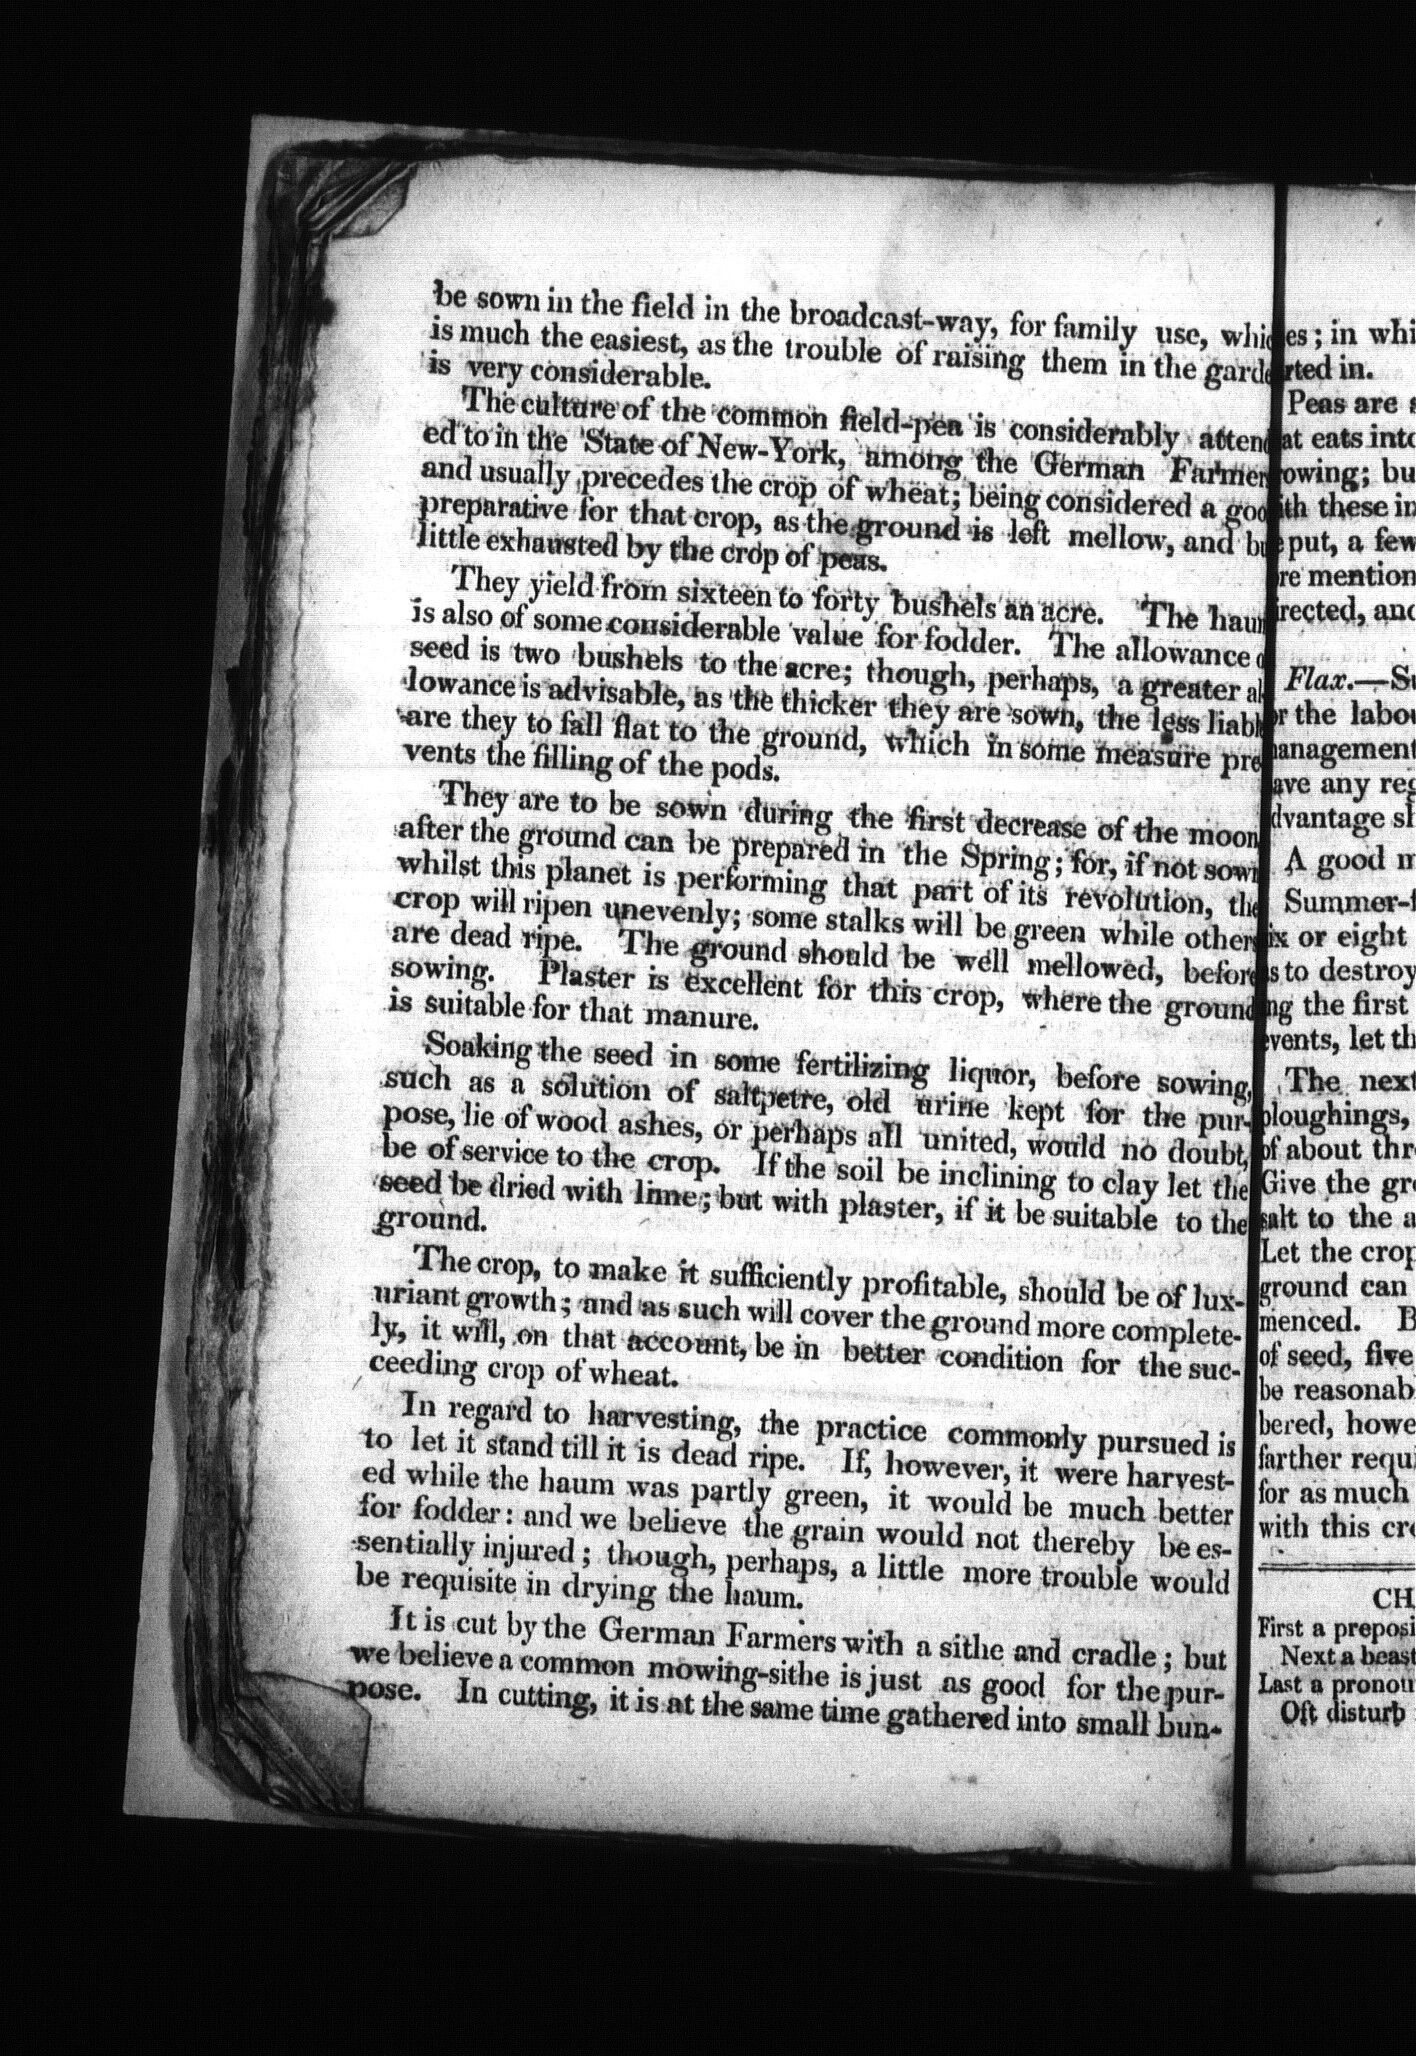 be sown in the field in the broadcast-way, for family use, whic
is much the easiest, as the trouble of raising them in the garde
is very considerable.
The culture of the common field-pea is considerably attend
ed to in the State of New-York, among the German Farmer
and usually precedes the crop of wheat; being considered a goo
preparative for that crop, as the ground is left mellow, and bu
little exhausted by the crop of peas.
They yield from sixteen to forty bushels an acre. The haum
is also of some considerable value for fodder. The allowance o
seed is two bushels to the acre; though, perhaps, a greater al-
lowance is advisable, as the thicker they are sown, the less liabl
are they to fall flat to the ground, which in some measure pre
vents the filling of the pods.
They are to be sown during the first decrease of the moon
after the ground can be prepared in the Spring; for, if not sown
whilst this planet is performing that part of its revolution, the
crop will ripen unevenly; some stalks will be green while others
are dead ripe. The ground should be well mellowed, before
sowing. Plaster is excellent for this crop, where the ground
is suitable for that manure.
Soaking the seed in some fertilizing liquor, before sowing,
such as a solution of saltpetre, old urine kept for the pur-
pose, lie of wood ashes, or perhaps all united, would no doubt,
be of service to the crop. If the soil be inclining to clay let the
seed be dried with lime; but with plaster, if it be suitable to the
ground.
The crop, to make it sufficiently profitable, should be of lux-
uriant growth; and as such will cover the ground more complete-
ly, it will, on that account, be in better condition for the suc-
ceeding crop of wheat.
In regard to harvesting, the practice commonly pursued is
to let it stand till it is dead ripe. If, however, it were harvest-
ed while the haum was partly green, it would be much better
for fodder: and we believe the grain would not thereby be es-
sentially injured; though, perhaps, a little more trouble would
be requisite in drying the haum.
It is cut by the German Farmers with a sithe and cradle; but
we believe a common mowing-sithe is just as good for the pur-
pose. In cutting, it is at the same time gathered into small bun-
es; in whi
rted in.
Peas are s
at eats into
rowing; bu
ith these in
put, a few
re mention
irected, and
Flax.—Su
or the labou
anagement
ave any reg
dvantage sh
A good m
Summer-f
ix or eight
s to destroy
ng the first
events, let th
The next
ploughings,
of about thr
Give the gro
salt to the a
Let the crop
ground can
menced. B
of seed, five
be reasonab
bered, howe
farther requi
for as much
with this cro
CH
First a preposi
Next a beast
Last a pronoun
Oft disturb